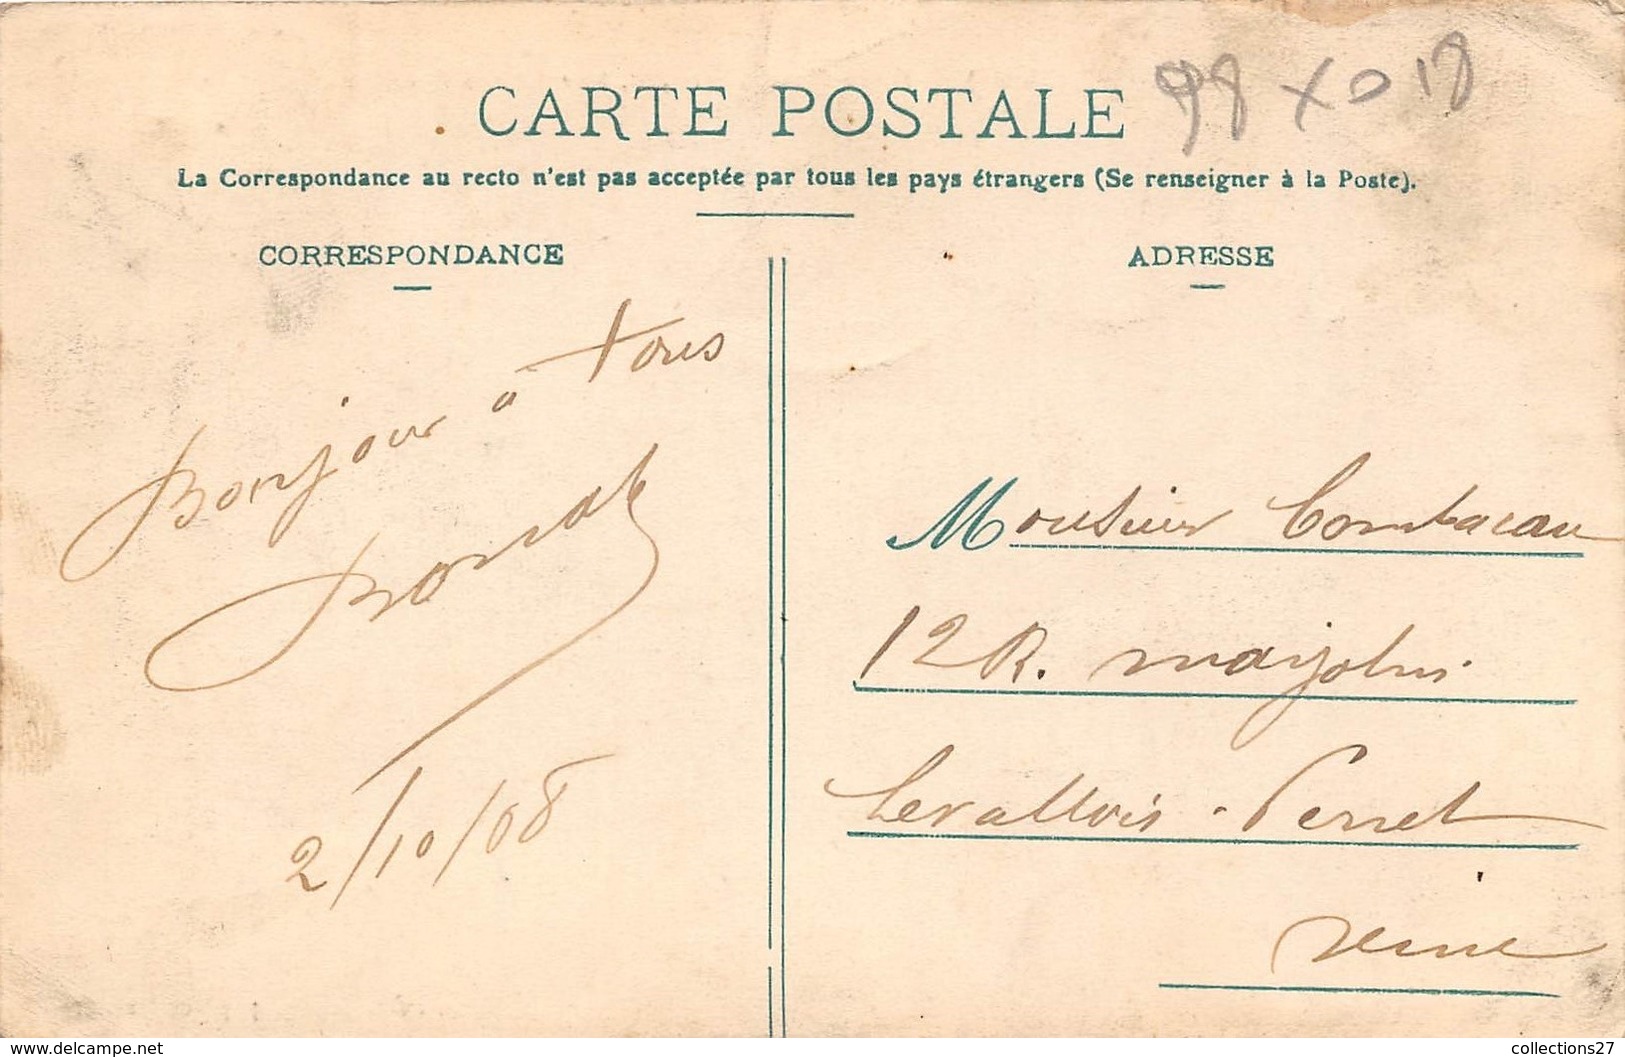 CARTE POSTALE
98 x 0 18
La Correspondance au recto n'est pas acceptée par tous les pays étrangers (Se renseigner à la Poste).
CORRESPONDANCE
Bonjour à tous
2/10/08
ADRESSE
Monsieur Combacau
12 R.
Levallois-Perret
Seine
www.delcampe.net
collections27